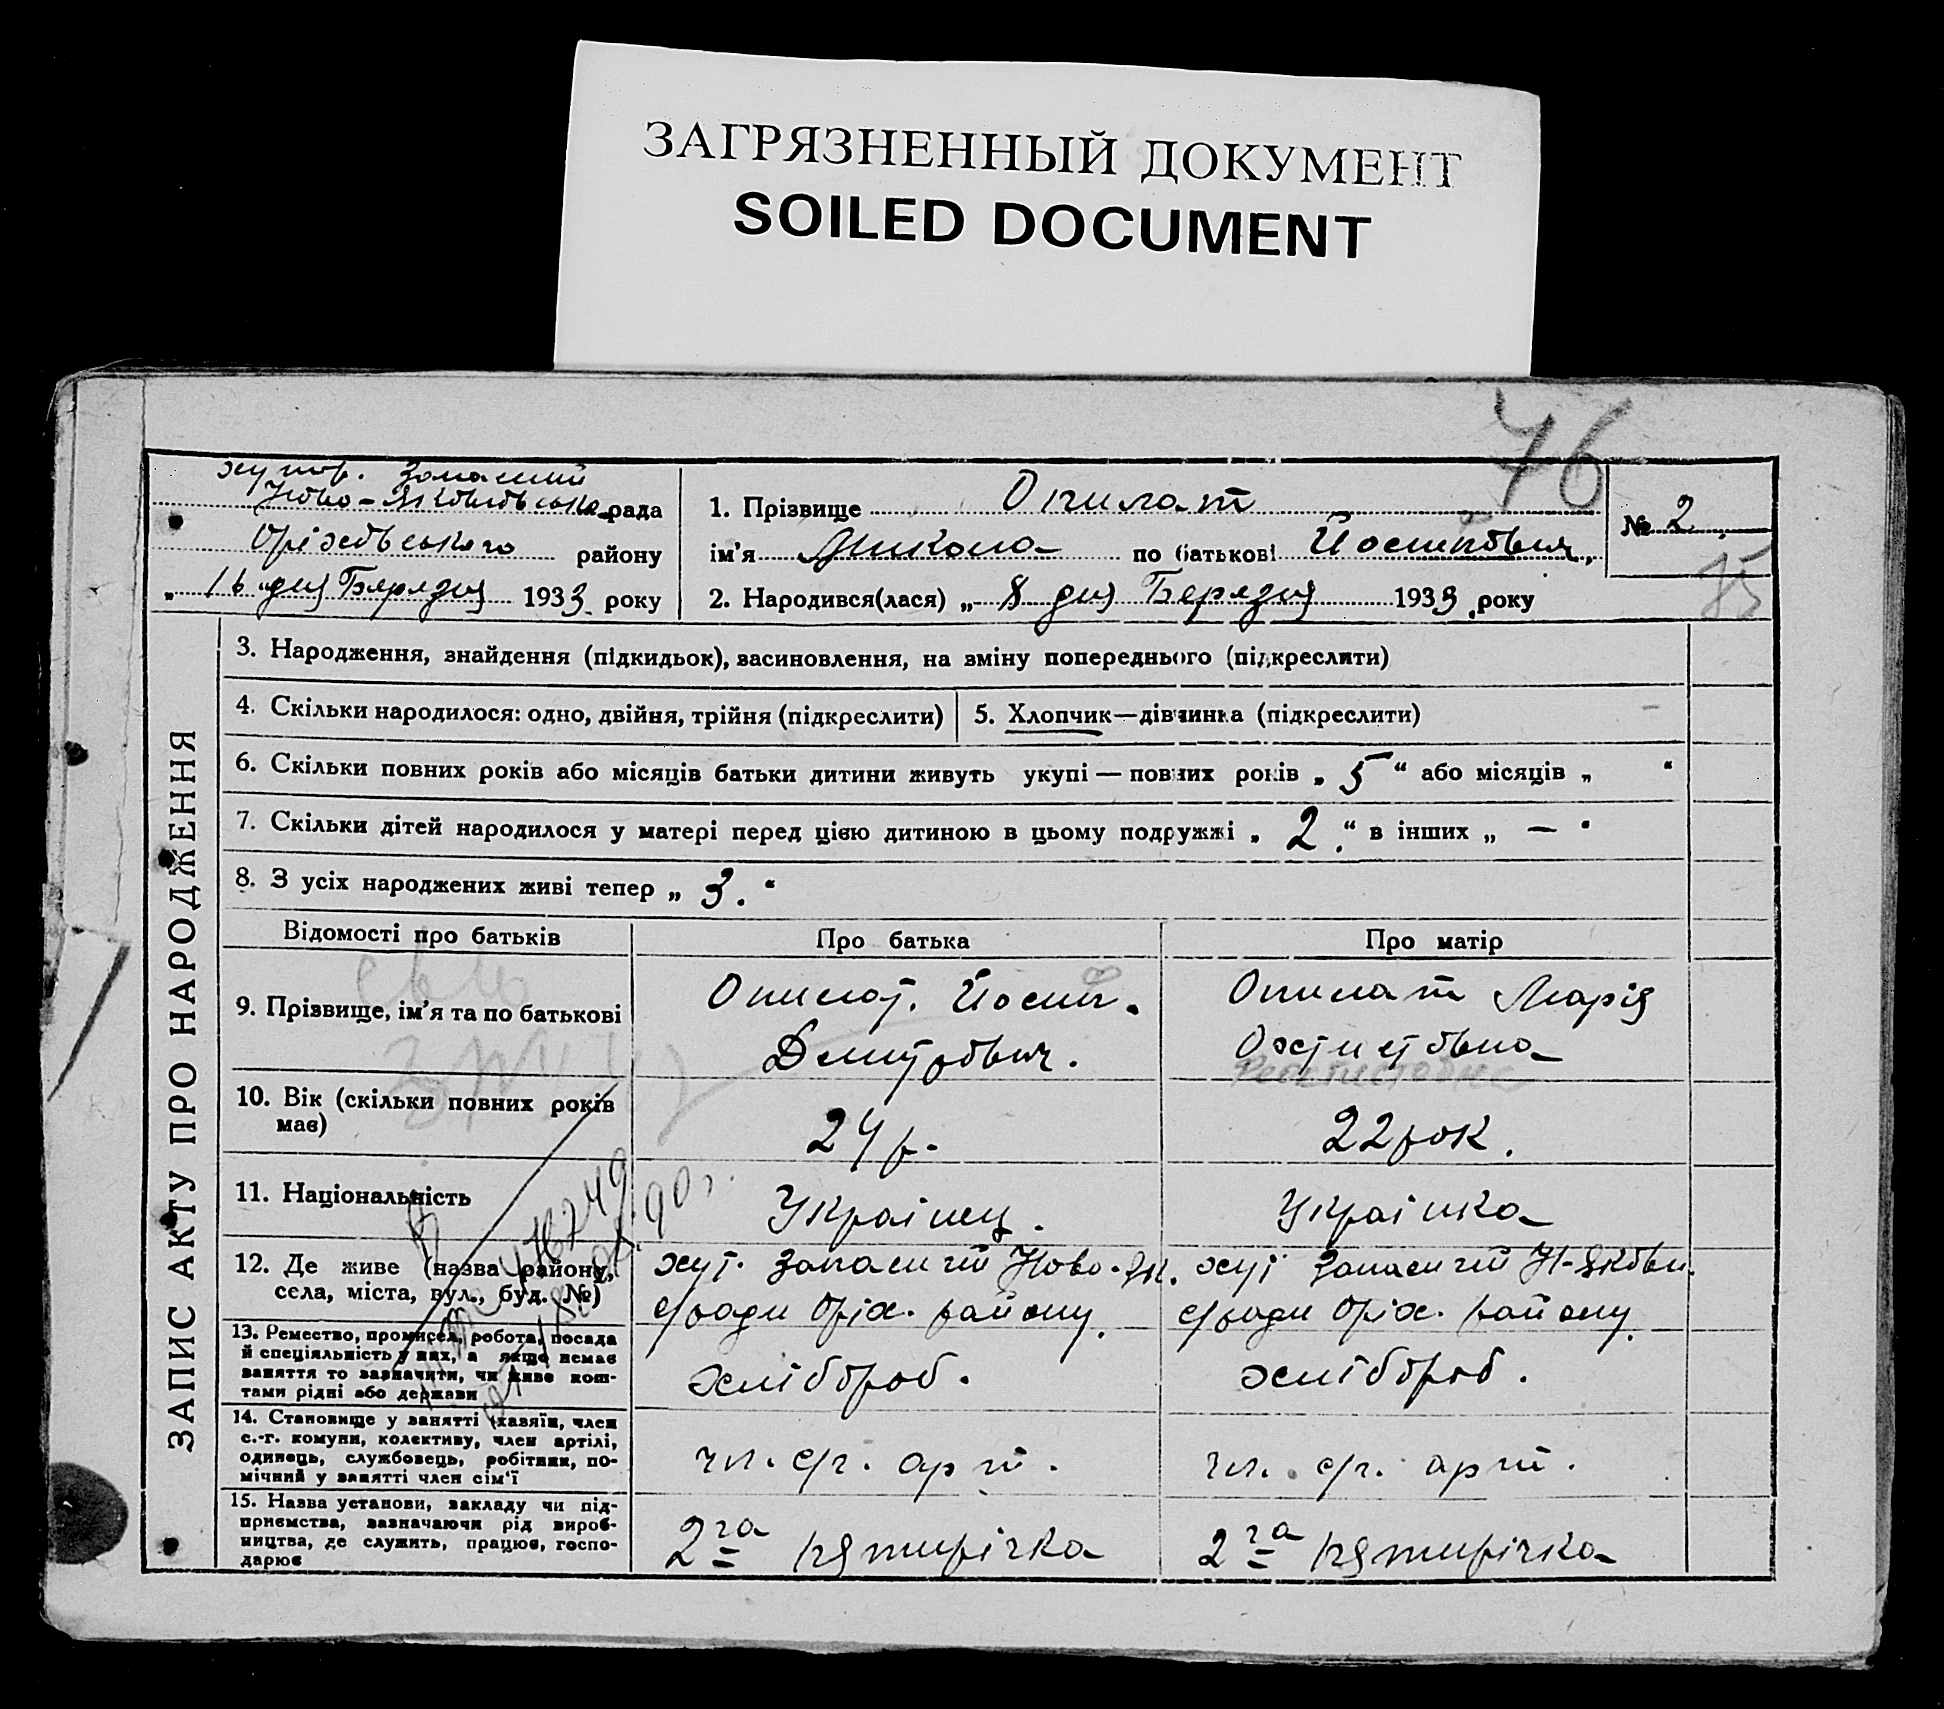 ЗАГРЯЗНЕННЫЙ ДОКУМЕНТ
SOILED DOCUMENT
76
хутор. Запасний
Ново-Яковлевська рада
Оріхівського району
„ 16 " дня Березня 1933 року
1. Прізвище Опилат
ім'я Микола по батькові Йосипович
2. Народився(лася) „ 8 дня Березня 1933 року
№ 2
75
ЗАПИС АКТУ ПРО НАРОДЖЕННЯ
3. Народження, знайдення (підкидьок), засиновлення, на зміну попереднього (підкреслити)
4. Скільки народилося: одно, двійня, трійня (підкреслити)
5. Хлопчик—дівчинка (підкреслити)
6. Скільки повних років або місяців батьки дитини живуть укупі — повних років „ 5 " або місяців „ "
7. Скільки дітей народилося у матері перед цією дитиною в цьому подружжі „ 2. " в інших „ — "
8. З усіх народжених живі тепер „ 3. "
Відомості про батьків
Про батька
Про матір
9. Прізвище, ім'я та по батькові
Опилат. Йосип.
Дмитрович.
Опилат Марія
10. Вік (скільки повних років
має)
24 р.
22 рок.
11. Національність
Українец.
Українка
12. Де живе (назва району,
села, міста, вул., буд. №)
хут. Запасний Ново-Як.
с/ради Оріх. району.
хут Запасний Н-Яковл.
с/ради Оріх. району.
13. Ремество, промисел, робота, посада
й спеціяльність у них, а якщо немає
заняття то зазначити, чи живе кош-
тами рідні або держави
хлібороб.
хлібороб.
14. Становище у занятті (хазяїн, член
с.-г. комуни, колективу, член артілі,
одинець, службовець, робітник, по-
мічний у занятті член сім'ї
чл. с/г. арт.
чл. с/г. арт.
15. Назва установи, закладу чи під-
приємства, зазначаючи рід вироб-
ництва, де служить, працює, госпо-
дарює
2га пятирічка
2га пятирічка